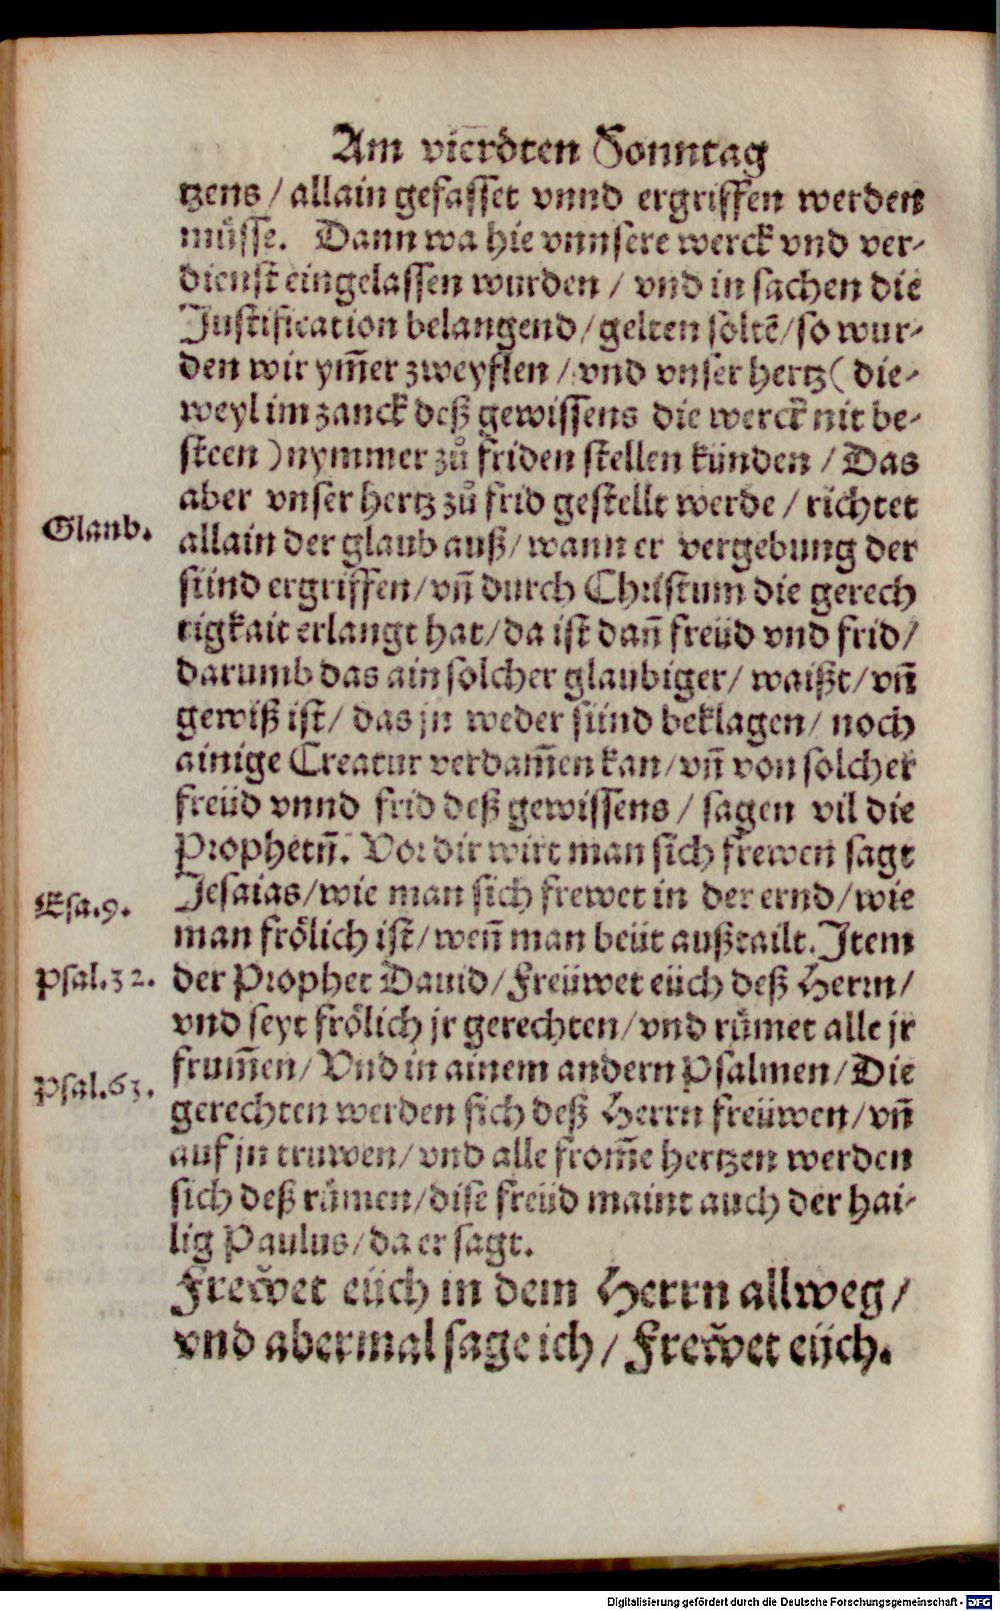 Am vierdten Sonntag
tzens / allain gefasset vnnd ergriffen werden
müsse. Dann wa hie vnnsere werck vnd ver-
dienst eingelassen wurden / vnd in sachen die
Justification belangend / gelten soltē / so wur-
den wir ym̄er zweyflen / vnd vnser hertz ( die-
weyl im zanck deß gewissens die werck nit be-
steen ) nymmer zů friden stellen künden / Das
aber vnser hertz zů frid gestellt werde / richtet
Glaub.
allain der glaub auß / wann er vergebung der
sünd ergriffen / vn̄ durch Christum die gerech
tigkait erlangt hat / da ist dan̄ freüd vnd frid /
darumb das ain solcher glaubiger / waißt / vn̄
gewiß ist / das jn weder sünd beklagen / noch
ainige Creatur verdam̄en kan / vn̄ von solcher
freüd vnnd frid deß gewissens / sagen vil die
Prophetn̄. Vor dir wirt man sich frewen sagt
Esa.9.
Jesaias / wie man sich frewet in der ernd / wie
man frölich ist / wen̄ man beüt außtailt. Item
Psal.32.
der Prophet Dauid / Freüwet eüch deß Herrn /
vnd seyt frölich jr gerechten / vnd rümet alle jr
frum̄en / Vnd in ainem andern Psalmen / Die
Psal.63.
gerechten werden sich deß Herrn freüwen / vn̄
auf jn truwen / vnd alle from̄e hertzen werden
sich deß rümen / dise freüd maint auch der hai-
lig Paulus / da er sagt.
Frew̆et eüch in dem Herrn allweg /
vnd abermal sage ich / Frew̆et eüch.
Digitalisierung gefördert durch die Deutsche Forschungsgemeinschaft - DFG